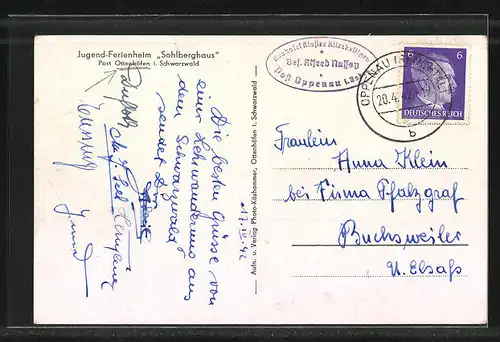 Jugend-Ferienheim „Sohlberghaus"
Post Ottenhöfen i. Schwarzwald
Die besten Grüsse von
einer Lehrwanderung aus
dem Schwarzwald
sendet Dir
17.IV.42
Aufn. u. Verlag Photo Käshammer, Ottenhöfen i. Schwarzwald
Kurhotel Kloster Allerheiligen
Bes. Alfred
Post Oppenau
OPPENAU
20.4.
b
6 6
DEUTSCHES REICH
Fräulein
Anna Klein
bei Firma Pfalzgraf
Buchsweiler
U. Elsaß